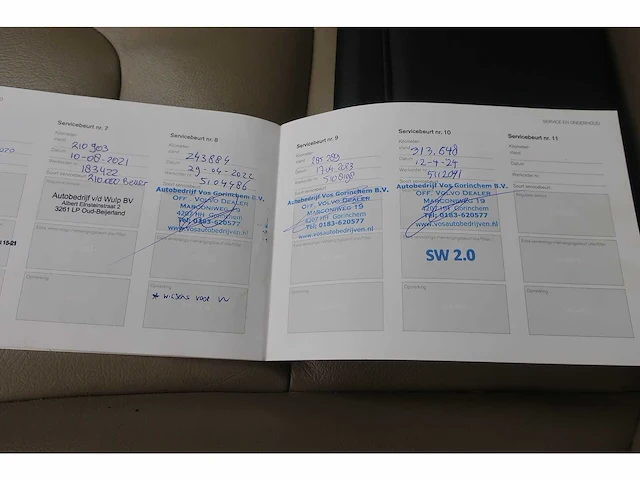 SERVICE EN ONDERHOUD
Servicebeurt nr. 7
Kilometer-
stand
210903
Datum
10-08-2021
183422
210.000 Beurt
Autobedrijf v/d Wulp BV
Albert Einsteinstraat 2
3261 LP Oud-Beijerland
Opmerking
Servicebeurt nr. 8
Kilometer-
stand
243884
Datum
29-04-2022
5104486
Autobedrijf Vos Gorinchem B.V.
Off. Volvo Dealer
Marconiweg 19
4207 HH Gorinchem
Tel: 0183-620577
www.vosautobedrijven.nl
Opmerking
* wissers voor VV
Servicebeurt nr. 9
Kilometer-
stand
285289
Datum
17-04-2023
Autobedrijf Vos Gorinchem B.V.
Off. Volvo Dealer
Marconiweg 19
4207 HH Gorinchem
Tel: 0183-620577
www.vosautobedrijven.nl
Opmerking
Servicebeurt nr. 10
Kilometer-
stand
313.648
Datum
12-4-24
5112091
Autobedrijf Vos Gorinchem B.V.
Off. Volvo Dealer
Marconiweg 19
4207 HH Gorinchem
Tel: 0183-620577
www.vosautobedrijven.nl
SW 2.0
Opmerking
Servicebeurt nr. 11
Kilometer-
stand
Datum
Opmerking